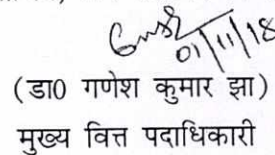 01/11/18
(डा0 गणेश कुमार झा)
मुख्य वित्त पदाधिकारी